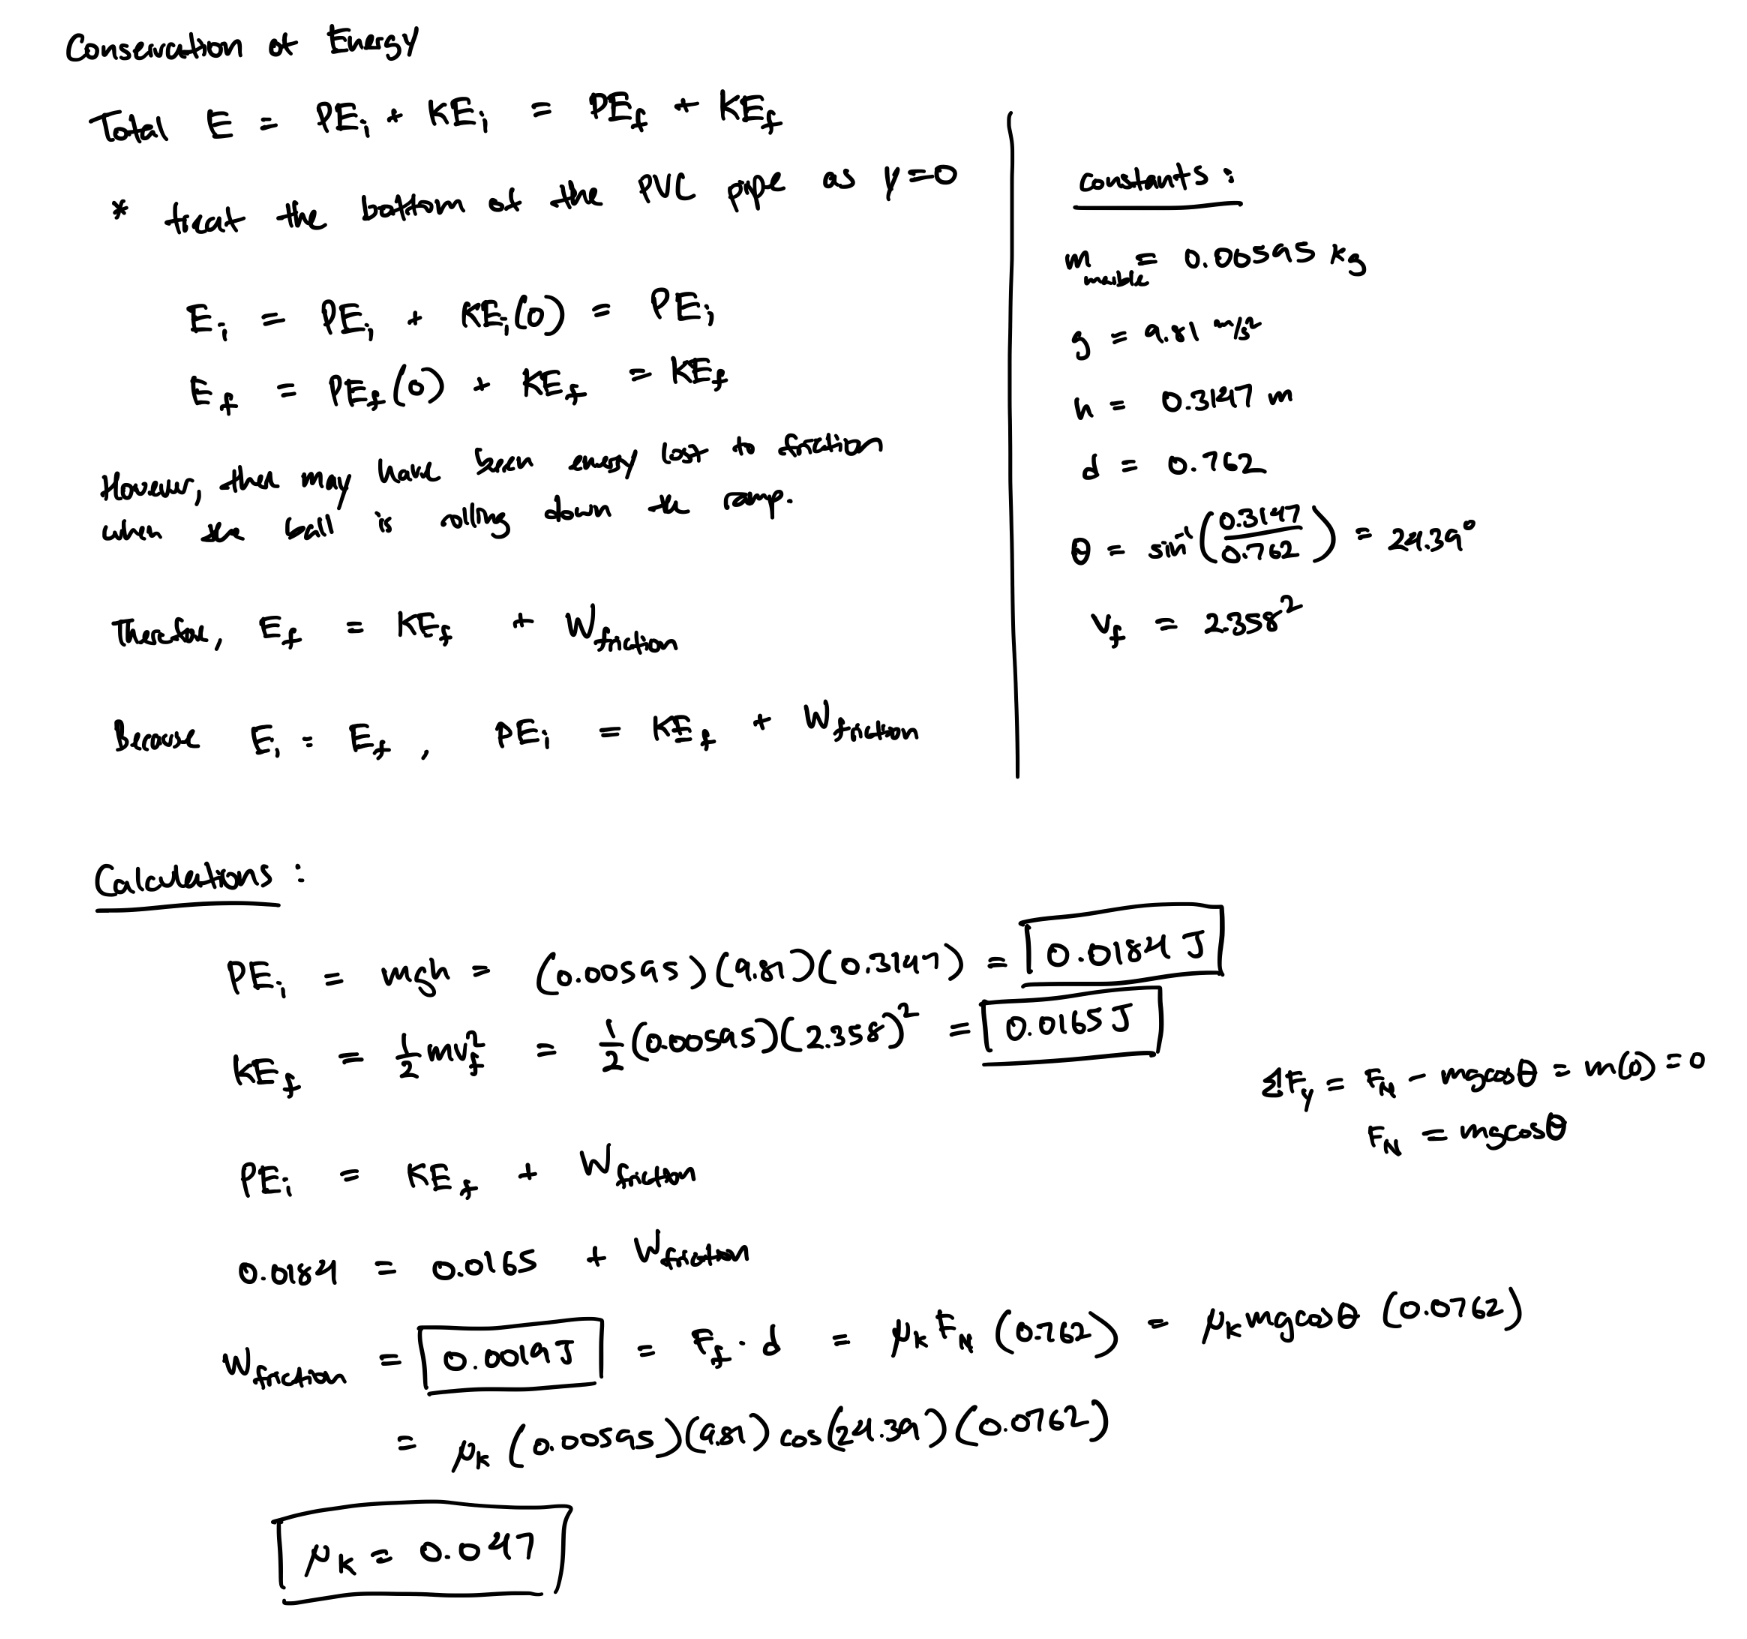 Conservation of Energy
Total E = PEᵢ + KEᵢ = PE_f + KE_f
* treat the bottom of the PVC pipe as y=0
Eᵢ = PEᵢ + KEᵢ(0) = PEᵢ
E_f = PE_f(0) + KE_f = KE_f
However, there may have been energy lost to friction
when the ball is rolling down the ramp.
Therefore, E_f = KE_f + W_friction
Because Eᵢ = E_f, PEᵢ = KE_f + W_friction
constants:
m_marble = 0.00595 kg
g = 9.81 m/s²
h = 0.3147 m
d = 0.762
θ = sin⁻¹(0.3147/0.762) = 24.39°
V_f = 2.358²
Calculations:
PEᵢ = mgh = (0.00595)(9.81)(0.3147) = 0.0184 J
KE_f = 1/2 mv_f² = 1/2 (0.00595)(2.358)² = 0.0165 J
ΣF_y = F_N - mgcosθ = m(0) = 0
F_N = mgcosθ
PEᵢ = KE_f + W_friction
0.0184 = 0.0165 + W_friction
W_friction = 0.0019 J = F_f · d = μ_k F_N (0.762) = μ_k mgcosθ (0.0762)
= μ_k (0.00595)(9.81) cos(24.39)(0.0762)
μ_k = 0.047